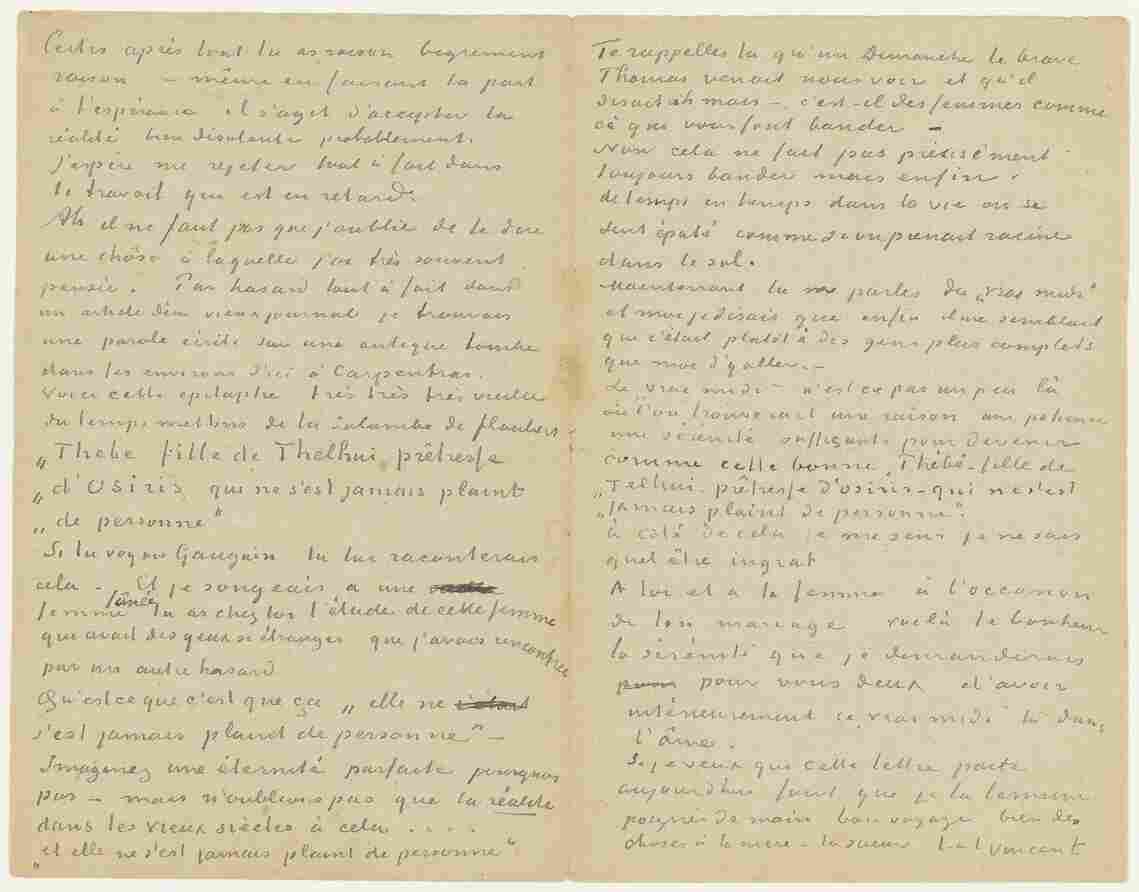 Certes après tout tu as raison bigrement
raison – même en faisant la part
à l'espérance il s'agit d'accepter la
réalité bien désolante probablement.
J'espère me rejeter tout à fait dans
le travail qui est en retard.
Ah il ne faut pas que j'oublie de te dire
une chôse à laquelle j'ai très souvent
pensée. Par hasard tout à fait dans
un article d'un vieux journal je trouvais
une parole écrite sur une antique tombe
dans les environs d'ici à Carpentras.
Voici cette epitaphe très très très vieille
du temps mettons de la Salambo de flaubert
„Thebe fille de Thelhui prêtresse
„d'Osiris qui ne s'est jamais plaint
„de personne"
Si tu voyais Gauguin tu lui raconterais
cela – Et je songeais a une
femme fanée tu as chez toi l'étude de cette femme
qui avait des yeux si étranges que j'avais rencontrée
par un autre hasard
Qu'est ce que c'est que ça „elle ne
s'est jamais plaint de personne" –
Imaginez une éternité parfaite pourquoi
pas – mais n'oublions pas que la réalité
dans les vieux siècles a cela ....
„et elle ne s'est jamais plaint de personne"
Te rappelles tu qu'un Dimanche le brave
Thomas venait nous voir et qu'il
disait ah mais – c'est-il des femmes comme
ça qui vous font bander –
Non cela ne fait pas précisément
toujours bander mais enfin –
de temps en temps dans la vie on se
sent épaté comme si on prenait racine
dans le sol.
Maintenant tu me parles du „vrai midi"
et moi je disais que enfin il me semblait
que c'était plutôt à des gens plus complets
que moi d'y aller. –
Le „vrai midi" n'est ce pas un peu là
où l'on trouverait une raison une patience
une sérénité suffisante pour devenir
comme cette bonne „Thébé–fille de
„Telhui–prêtresse d'osiris–qui ne s'est
„jamais plaint de personne".
à côté de cela je me sens je ne sais
quel être ingrat
A toi et a ta femme à l'occasion
de ton mariage voilà le bonheur
la sérénité que je demanderais
pour vous deux d'avoir
intérieurement ce vrai midi là dans
l'âme.
Si je veux que cette lettre parte
aujourd'hui faut que je la termine
poignée de main bon voyage bien des
choses à la mère & la soeur t. à t. Vincent